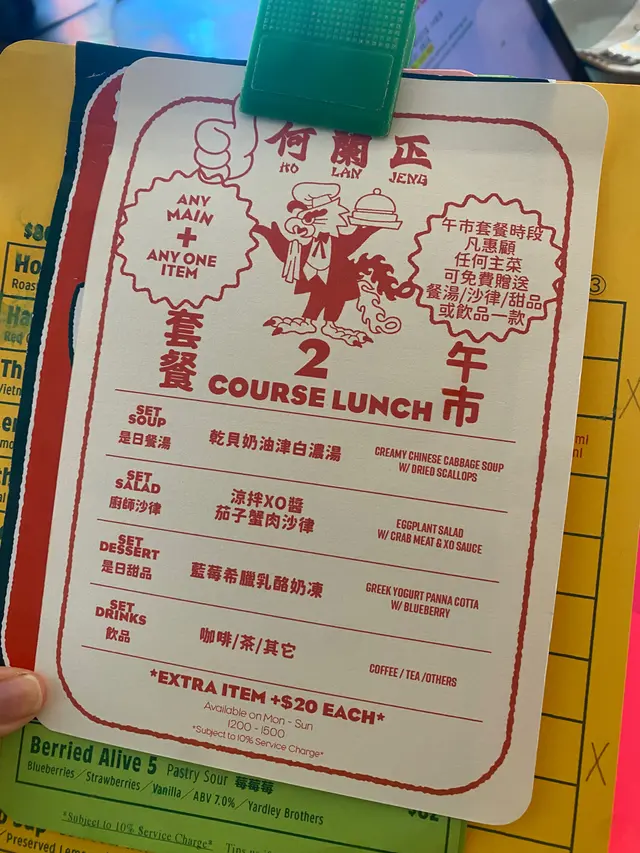 何蘭正
HO LAN JENG
ANY
MAIN
+
ANY ONE
ITEM
午市套餐時段
凡惠顧
任何主菜
可免費贈送
餐湯/沙律/甜品
或飲品一款
套餐
2
COURSE LUNCH
午市
SET
SOUP
是日餐湯
乾貝奶油津白濃湯
CREAMY CHINESE CABBAGE SOUP
W/ DRIED SCALLOPS
SET
SALAD
廚師沙律
涼拌XO醬
茄子蟹肉沙律
EGGPLANT SALAD
W/ CRAB MEAT & XO SAUCE
SET
DESSERT
是日甜品
藍莓希臘乳酪奶凍
GREEK YOGURT PANNA COTTA
W/ BLUEBERRY
SET
DRINKS
飲品
咖啡/茶/其它
COFFEE / TEA /OTHERS
*EXTRA ITEM +$20 EACH*
Available on Mon - Sun
1200 - 1500
*Subject to 10% Service Charge*
Berried Alive 5 Pastry Sour 莓莓莓
Blueberries / Strawberries / Vanilla / ABV 7.0% / Yardley Brothers
*Subject to 10% Service Charge*
Preserved